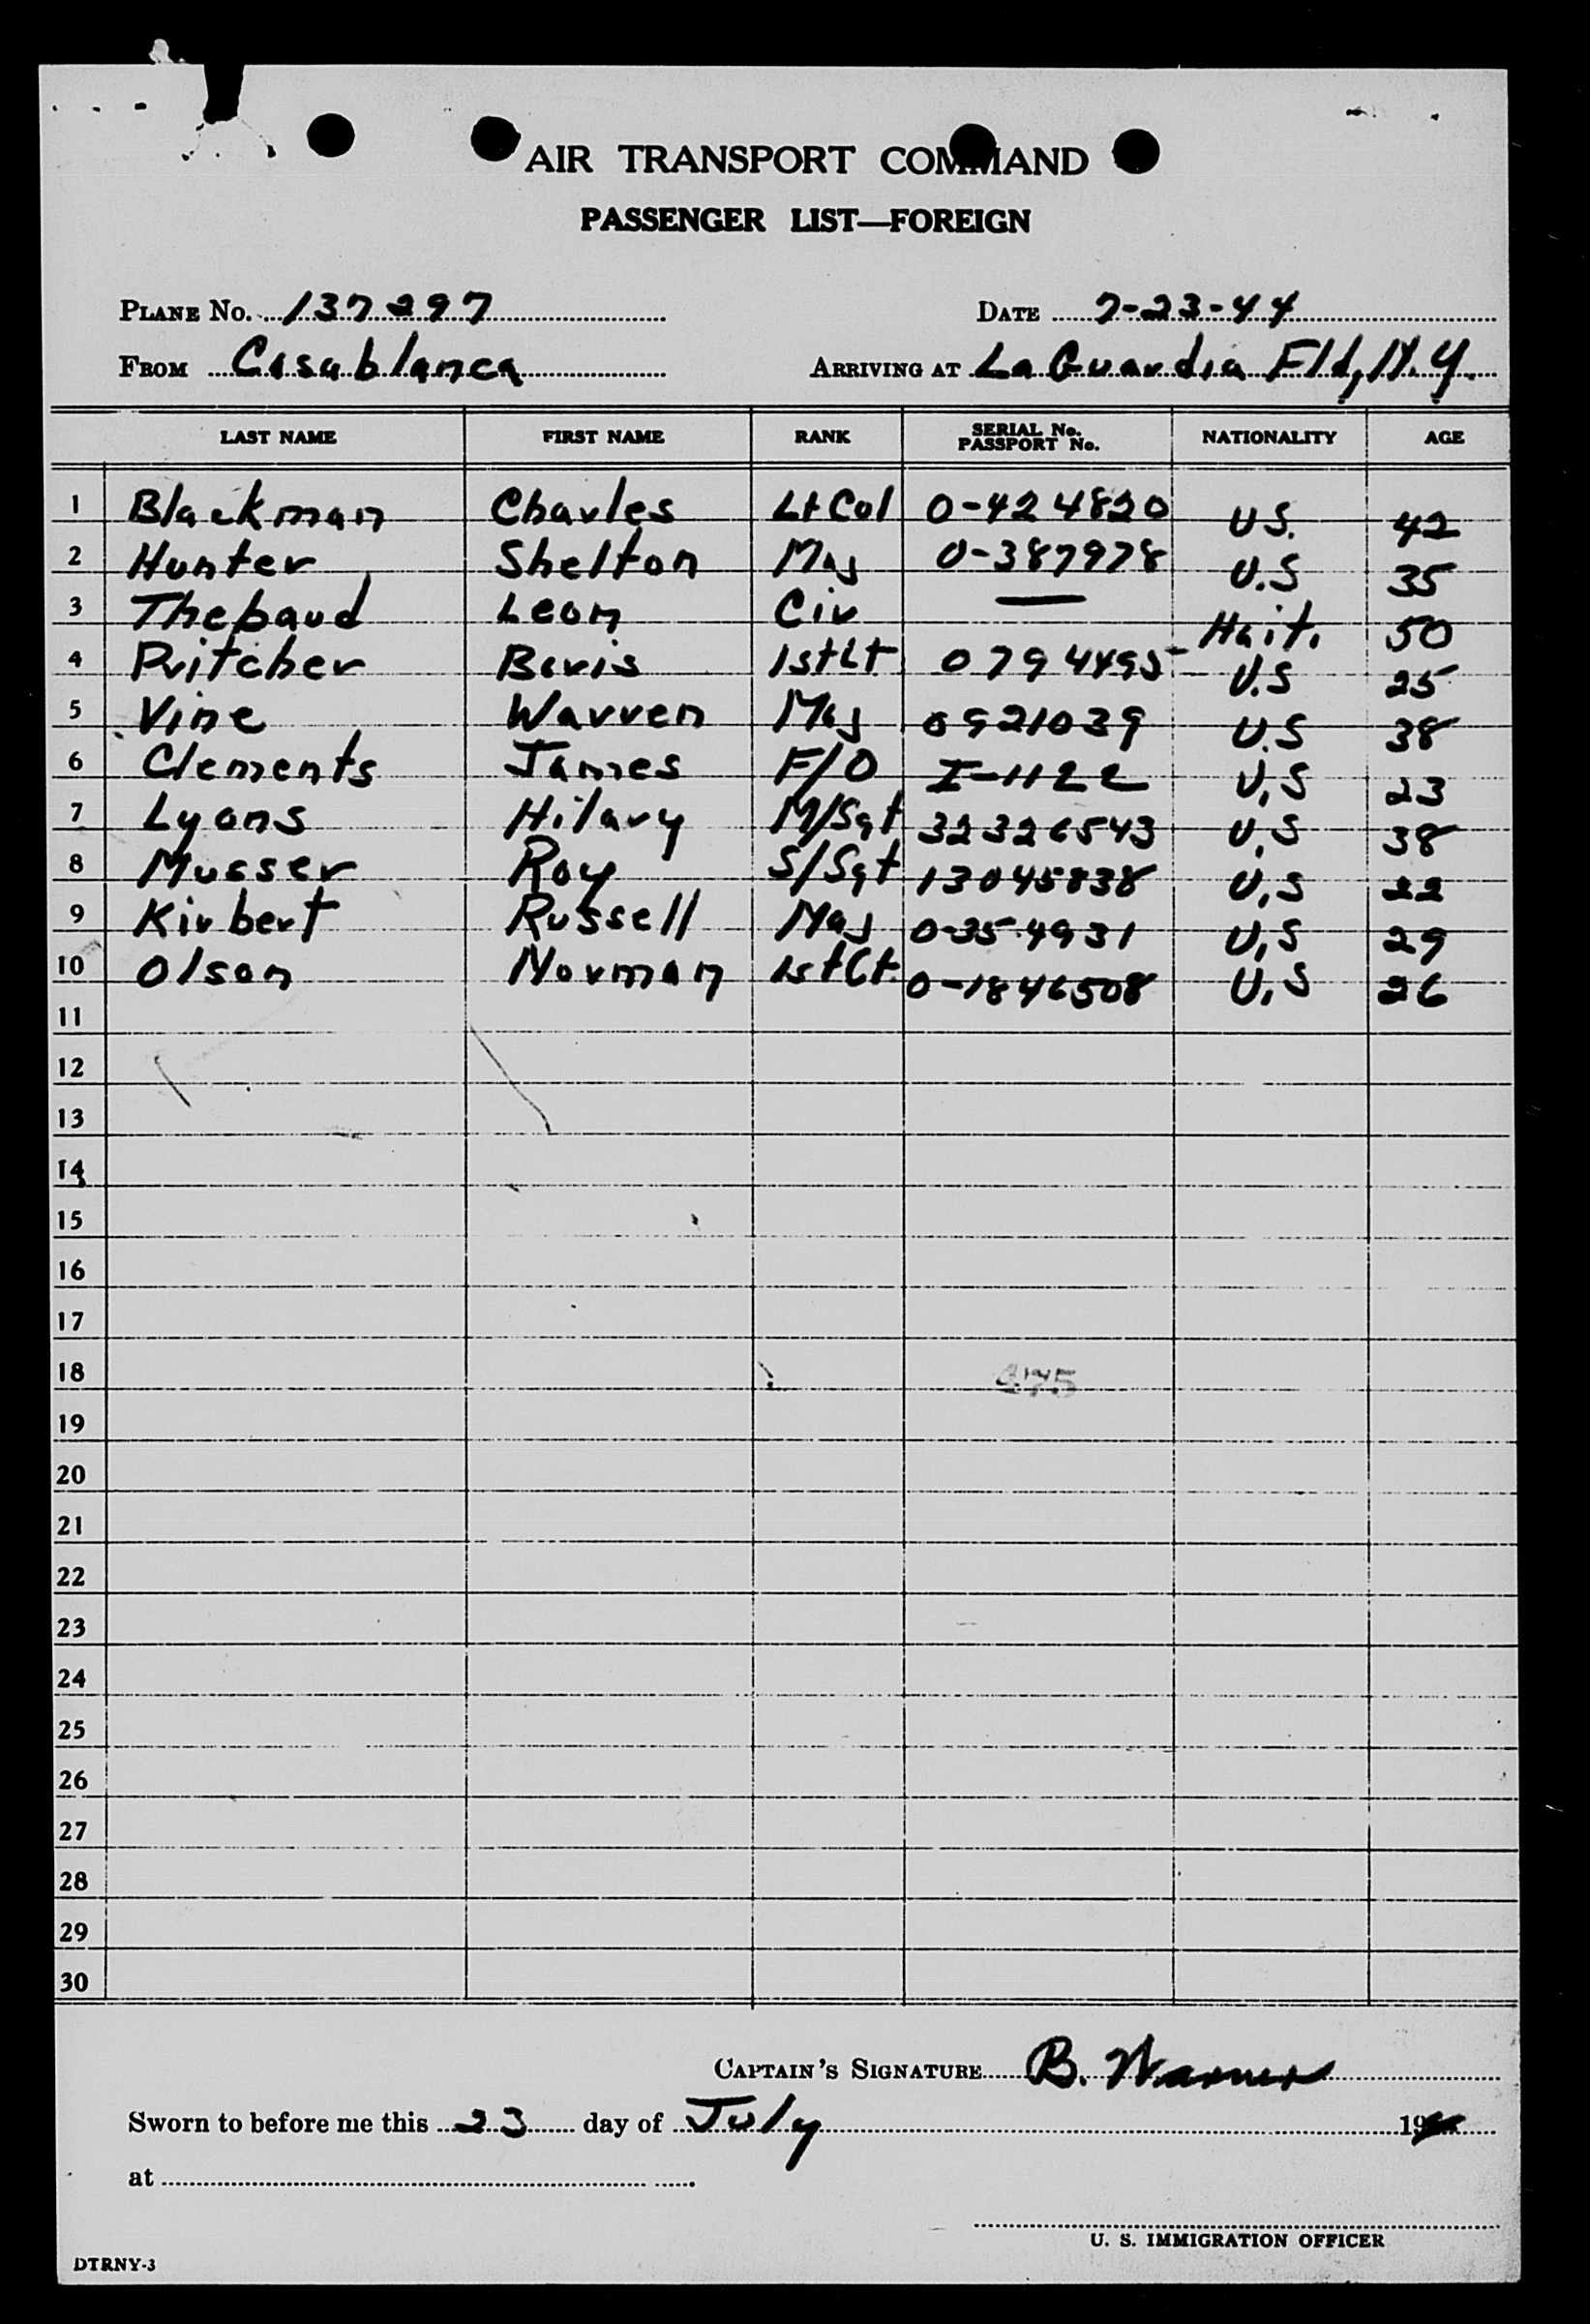 AIR TRANSPORT COMMAND
PASSENGER LIST—FOREIGN
PLANE No. 137297 DATE 7-23-44
FROM Casablanca ARRIVING AT La Guardia Fld, N.Y.
LAST NAME FIRST NAME RANK SERIAL No. PASSPORT No. NATIONALITY AGE
1 Blackman Charles Lt Col 0-424820 US. 42
2 Hunter Shelton Maj 0-387978 U.S 35
3 Thebaud Leon Civ — Hait. 50
4 Pritcher Boris 1st Lt 0794495 U.S 25
5 Vine Warren Maj 0921039 U.S 38
6 Clements James F/O I-1122 U.S 23
7 Lyons Hilary M/Sgt 32326543 U.S 38
8 Musser Roy S/Sgt 13045838 U.S 22
9 Kirbert Russell Maj 0-354931 U.S 29
10 Olson Norman 1st Lt. 0-1846508 U.S 26
11
12
13
14
15
16
17
18
19
20
21
22
23
24
25
26
27
28
29
30
CAPTAIN'S SIGNATURE B. Warner
Sworn to before me this 23 day of July 19
at
U. S. IMMIGRATION OFFICER
DTRNY-3